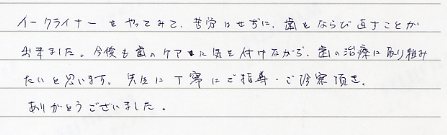 イークライナーをやってみて、苦労はせずに、歯をならび直すことが
出来ました。今後も歯のケアもに気を付けながら、歯の治療に取り組み
たいと思います。先生に丁寧にご指導・ご診察頂き、
ありがとうございました。